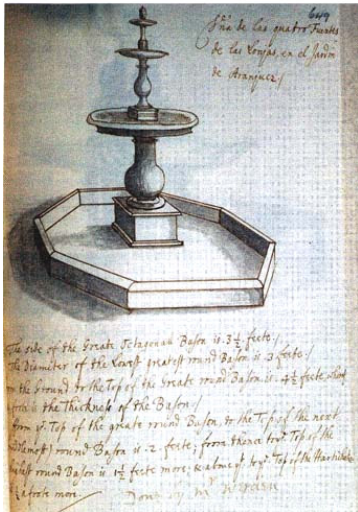 649
de las quatro Fuentes
de las Lonjas, en el Jardin
de Aranjuez /
The side of the Greate Octagonall Bason is 3½ feete /
The Diameter of the Lowest greatest round Bason is 3 feete /
the Ground to the Top of the Greate round Bason is 4½ feete,
is the thickness of the Bason /
from yᵉ Top of the greate round Bason, to the Top of the next
round Bason is 2 feete; from thence to yᵉ Top of the
round Bason is 1½ feete more, & above yᵗ to yᵉ Top of the
a foote more
Done by Mʳ